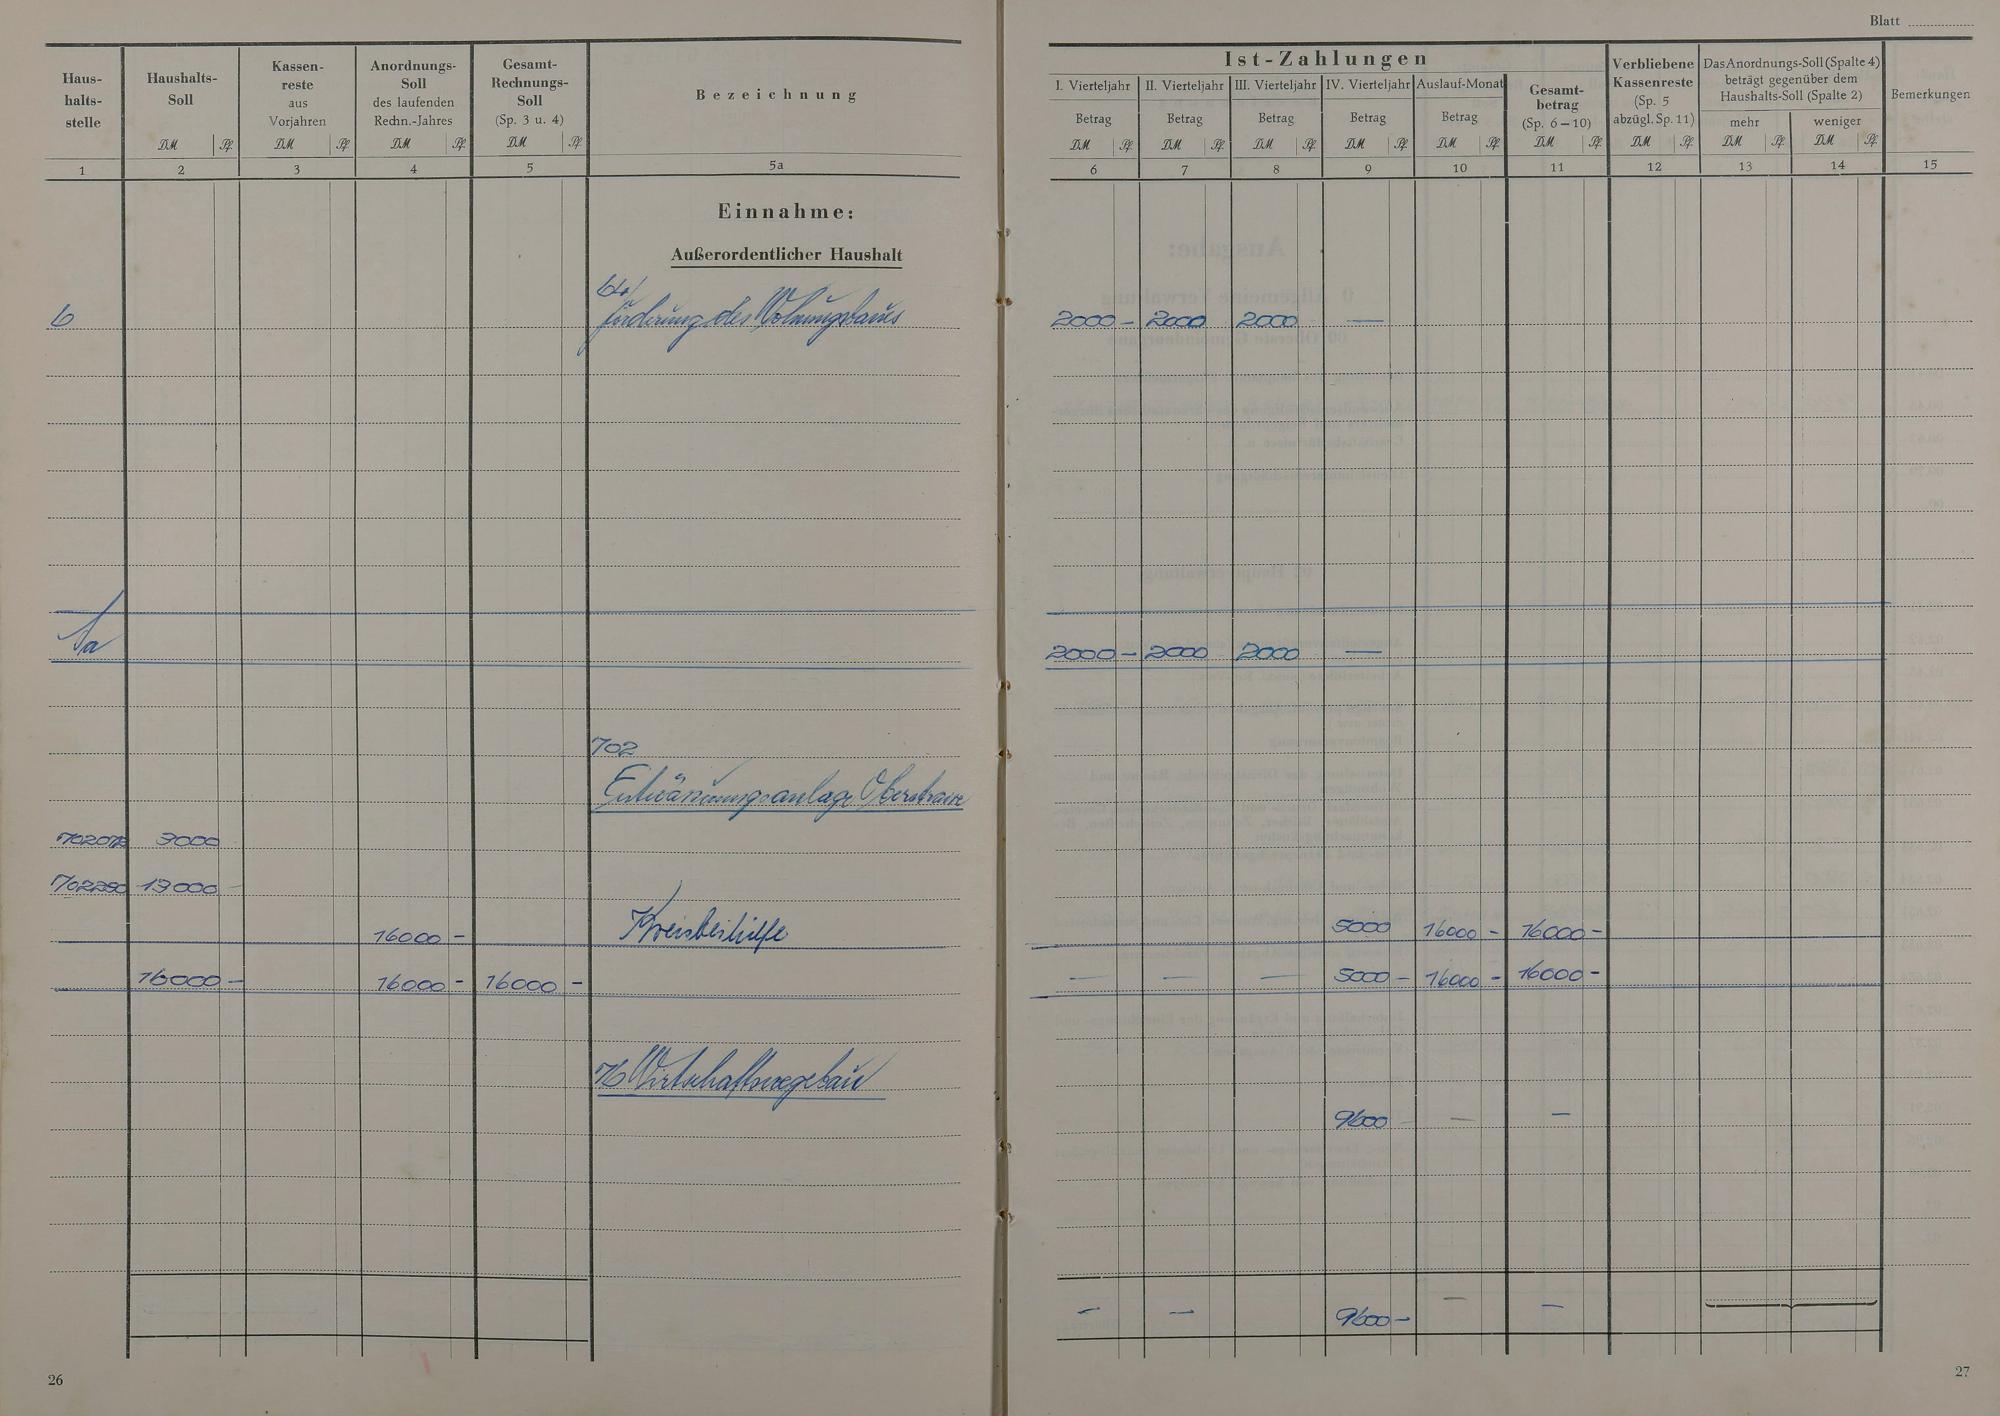 Blatt
Haus-
halts-
stelle
Haushalts-
Soll
DM Pf.
Kassen-
reste
aus
Vorjahren
DM Pf.
Anordnungs-
Soll
des laufenden
Rechn.-Jahres
DM Pf.
Gesamt-
Rechnungs-
Soll
(Sp. 3 u. 4)
DM Pf.
Bezeichnung
1 2 3 4 5 5a
Einnahme:
Außerordentlicher Haushalt
6 Förderung des Wohnungsbaues
Sa
702
Entwässerungsanlage Oberstrasse
3000
13000
16000 - Kreisbeihilfe
16000 - 16000 - 16000 -
76 Wirtschaftswegebau
26
Ist-Zahlungen
I. Vierteljahr
Betrag
DM Pf.
II. Vierteljahr
Betrag
DM Pf.
III. Vierteljahr
Betrag
DM Pf.
IV. Vierteljahr
Betrag
DM Pf.
Auslauf-Monat
Betrag
DM Pf.
Gesamt-
betrag
(Sp. 6–10)
DM Pf.
Verbliebene
Kassenreste
(Sp. 5
abzügl. Sp. 11)
DM Pf.
Das Anordnungs-Soll (Spalte 4)
beträgt gegenüber dem
Haushalts-Soll (Spalte 2)
mehr
DM Pf.
weniger
DM Pf.
Bemerkungen
6 7 8 9 10 11 12 13 14 15
2000 - 2000 2000 —
2000 - 2000 2000 —
5000 16000 - 16000 -
— — — 5000 - 16000 - 16000 -
9600 — —
— — 9600 - — —
27